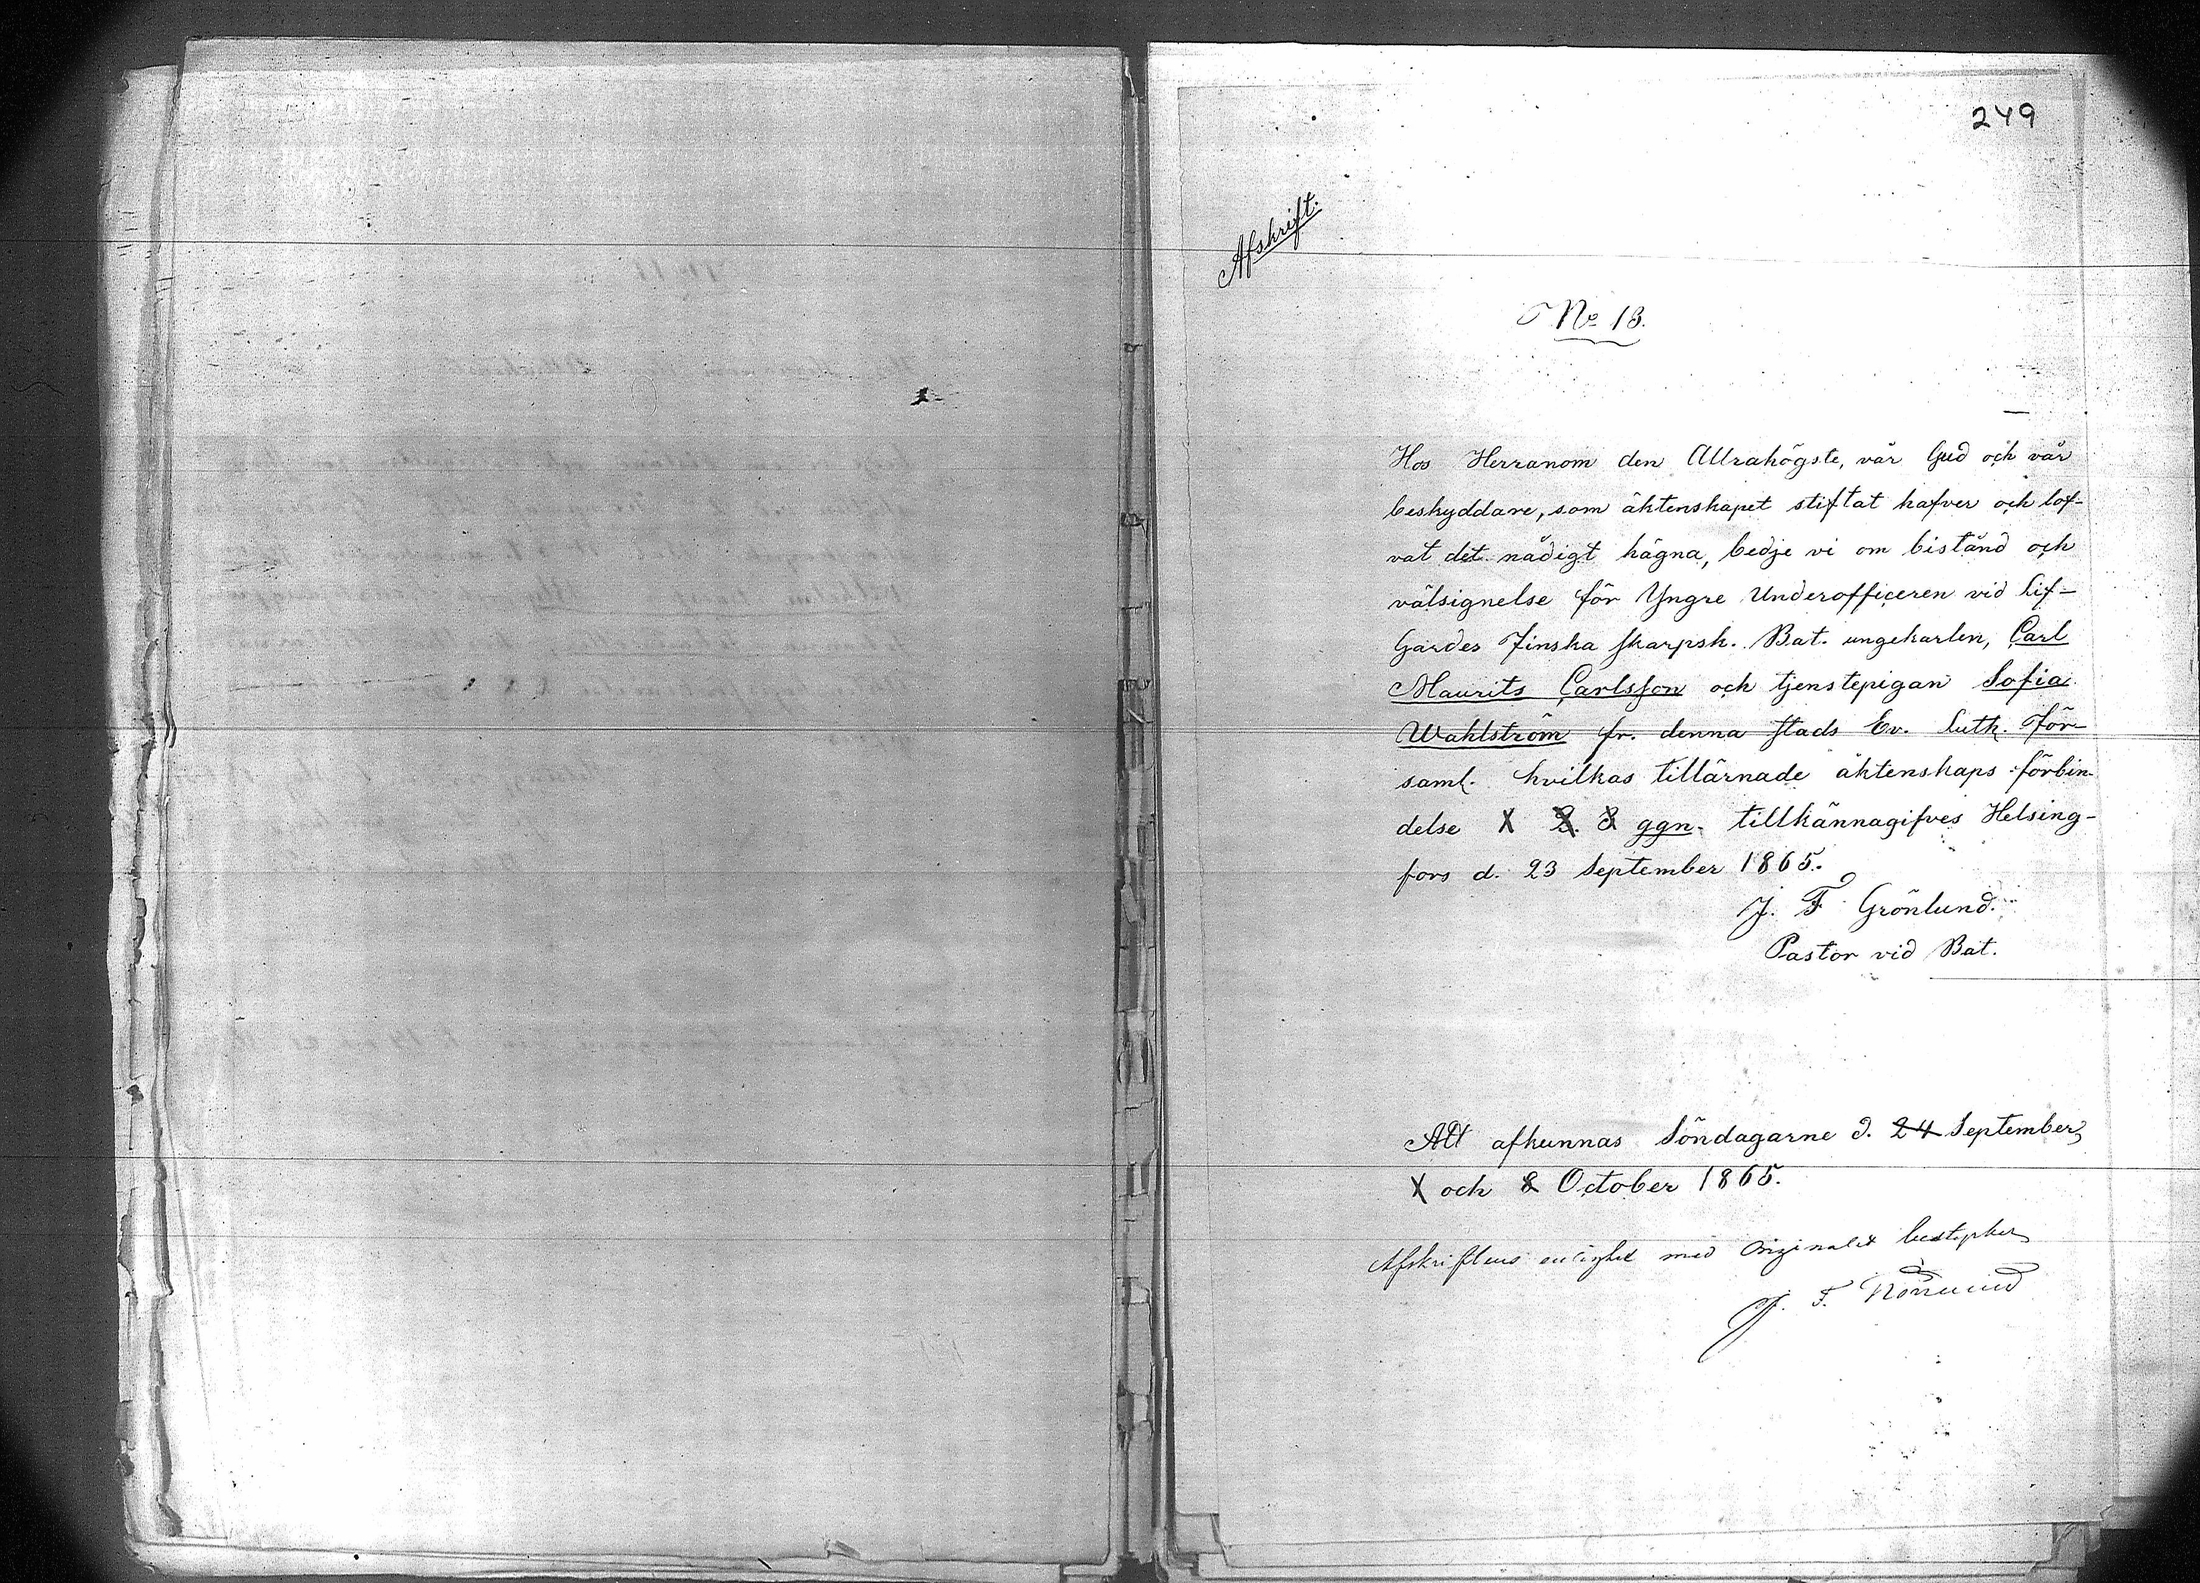 249
Afskrift.
No 13.
Hos Herranom den Allrahögste, vår Gud och vår
beskyddare, som äktenskapet stiftat hafver och lof-
vat det nådigt hägna, bedje vi om bistånd och
välsignelse för Yngre Underofficeren vid Lif-
Gardes Finska Skarpsk. Bat. ungekarlen, Carl
Maurits Carlsson och tjenstepigan Sofia
Wahlström fr. denna stads Ev. Luth. För-
saml. hvilkas tillärnade äktenskaps förbin-
delse 1 2. 3 ggn. tillkännagifves Helsing-
fors d. 23 September 1865.
J. F. Grönlund.
Pastor vid Bat.
Att afkunnas Söndagarne d. 24 September,
1 och 8 October 1865.
Afskriftens enlighet med Originalet bestyrker
J. F.